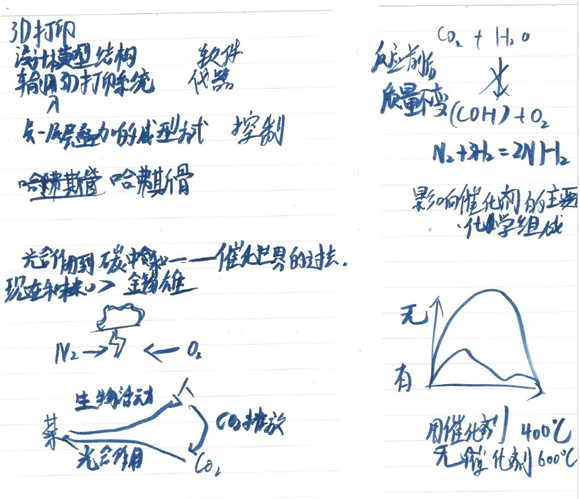 3D打印
设计模型结构 软件
输入3D打印系统 仪器
层层叠加的成型方式 控制
哈弗斯管 哈弗斯骨
光合作用到碳中和——催化世界的过去.
现在和未来 金锋雄
N₂→ ←O₂
生物活动
CO₂排放
光合作用
CO₂
CO₂ + H₂O
反应前后
质量不变 (COH) + O₂
N₂+3H₂=2NH₂
影响催化剂的主要
化学组成
无
有
用催化剂 400℃
无催化剂 600℃